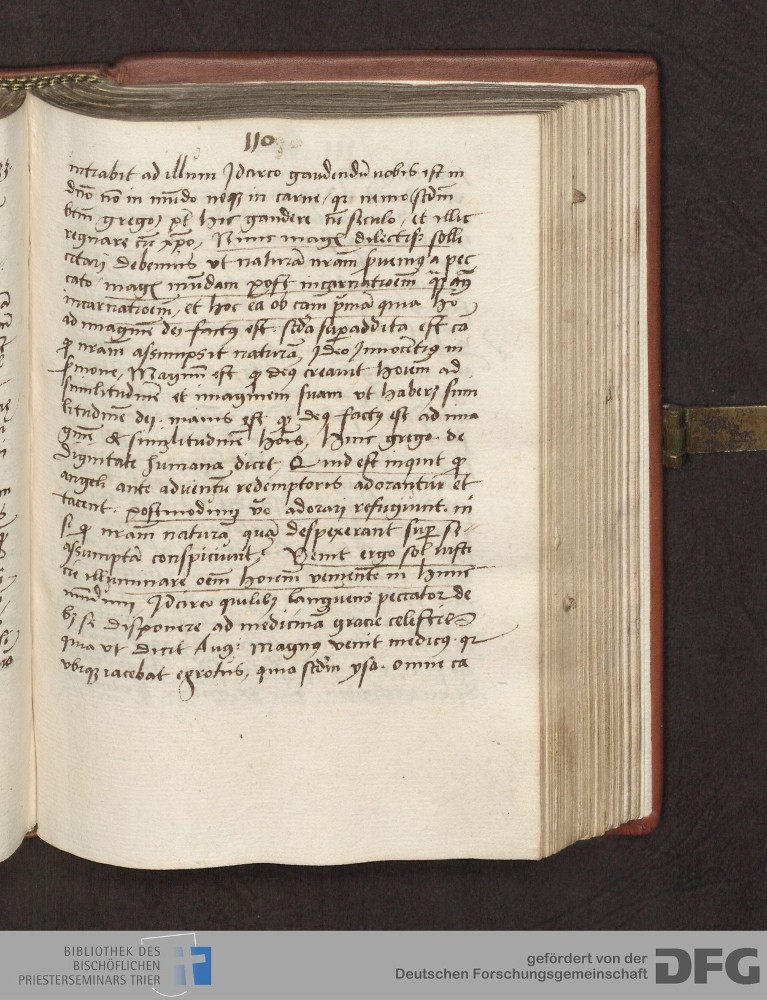 110
intrabit ad illum Idcirco gaudendū nobis est in
dño nō in mūdo neqȝ in carne, qr nemo scdm
btm grego) pt hic gaudere cū seculo, et illic
regnare cū xp̄o, Nunc mage dilectiss solli
citari debemus ut naturā nram
cato mage mūdam post incarnatioem
incarnatioem, et hoc ea ob cam pmā quia ho
ad imaginē dei factus est. scda supaddita est ca
qȝ nram assumpsit naturā, Ideo Innocētius in
smone, Magnū est qȝ deus creauit hoiem ad
similitudinē et imaginem suam ut haberȝ simi
litudinē dei. maius est qȝ deus factus est ad ima
ginē & similitudinē hois, Hinc grego. de
dignitate humana dicit Quid est inquit qȝ
angeli ante aduentū redemptoris adorantur et
tacent. postmodum vo adorari refugiunt. ni
si qȝ nram naturā quā despexerant sup se
assumptā conspiciunt? Venit ergo sol iusti
cie illuminare oem hoiem venientē in hunc
mūdum Idcirco quilibȝ languens peccator de
bȝ se disponere ad medicinā gracie celestis
quia ut dicit Aug: magnus venit medicus. qr
ubiqȝ iacebat egrotus, quia scdm ysa. omne ca
BIBLIOTHEK DES
BISCHÖFLICHEN
PRIESTERSEMINARS TRIER
gefördert von der
Deutschen Forschungsgemeinschaft
DFG